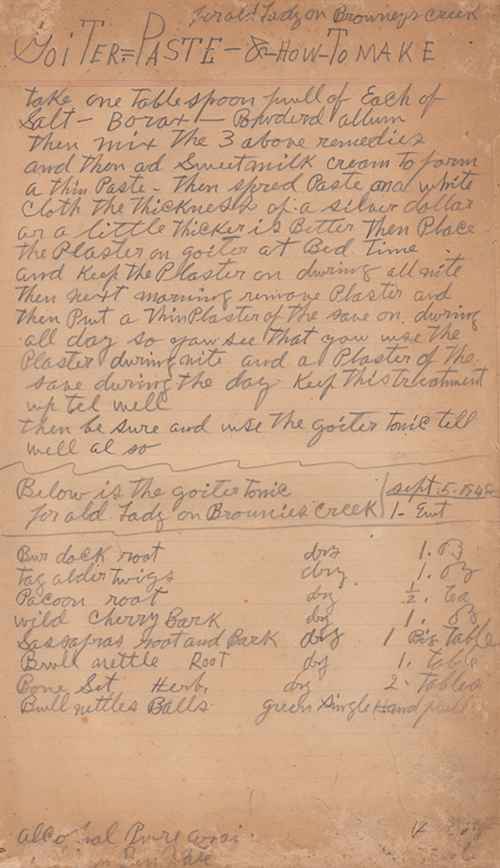 for old Lady on Browneys Creek
GOITER = PASTE - & - HOW - TO MAKE
take one tablespoon full of Each of
Salt - Borax - Powderd allum
then mix the 3 above remedies
and then ad Sweetmilk cream to form
a thin Paste - then spred Paste on a white
cloth the thickness of a silver dollar
or a little thicker is Better then Place
the Plaster on goiter at Bed time
and Keep the Plaster on during all nite
then next morning remove Plaster and
then Put a thin Plaster of the save on during
all day so you see that you use the
Plaster during nite and a Plaster of the
save during the day Keep this treatment
up tel well
then be sure and use the goiter tonic tell
well al so
Below is the goiter tonic
for old Lady on Brownies Creek
sept. 5-
1-
Bur dock root dry 1. oz
tag alder twigs dry 1. oz
Pacoon root dry ½. tea
wild cherry Bark dry 1. oz
Sassafras root and Bark dry 1 Big table
Bull nettle Root dry 1. table
Bone Set Herb. dry 2- tables
Bull nettles Balls green single Hand full
Pure